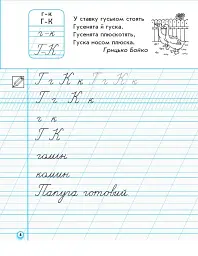 г-к
Г-К
г-к
Г-К
У ставку гуськом стоять
Гусенята й гуска.
Гусенята плюскотять,
Гуска носом плюска.
Грицько Бойко
Г г К к Г г К к
Г г К к
г к
Г К
гамін
камін
Папуга готовий.
4